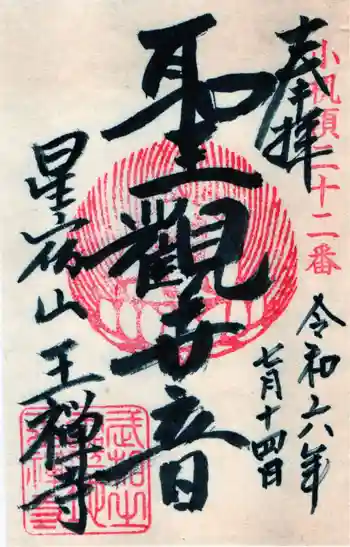 小机領三十二番
奉拝
聖觀世音
星宿山
王禅寺
令和六年
七月十四日